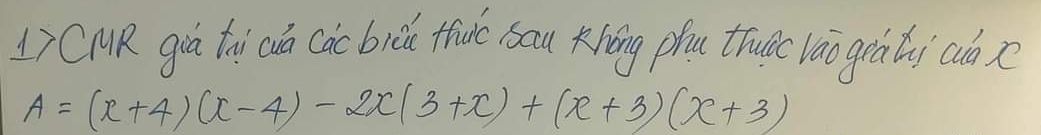 1> CMR giá trị của các biểu thức sau không phụ thuộc vào giá trị của x
A = (x+4)(x-4) - 2x(3+x) + (x+3)(x+3)